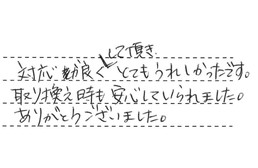 対応も良くして頂き
とてもうれしかったです。
取り換え時も安心していられました。
ありがとうございました。